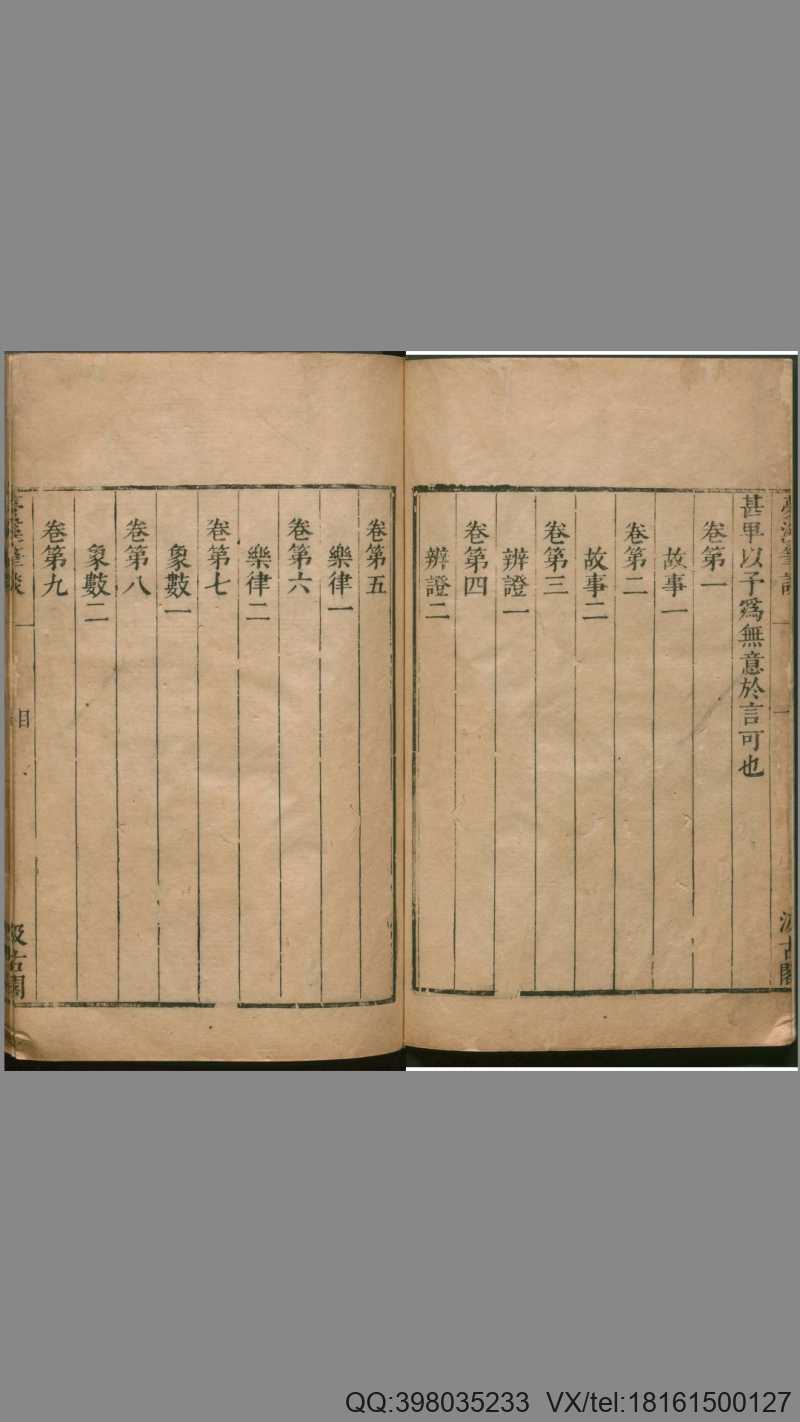 甚卑以予爲無意於言可也
卷第一
故事一
卷第二
故事二
卷第三
辨證一
卷第四
辨證二
卷第五
樂律一
卷第六
樂律二
卷第七
象數一
卷第八
象數二
卷第九
夢溪筆談 一
目
汲古閣
QQ:398035233 VX/tel:18161500127